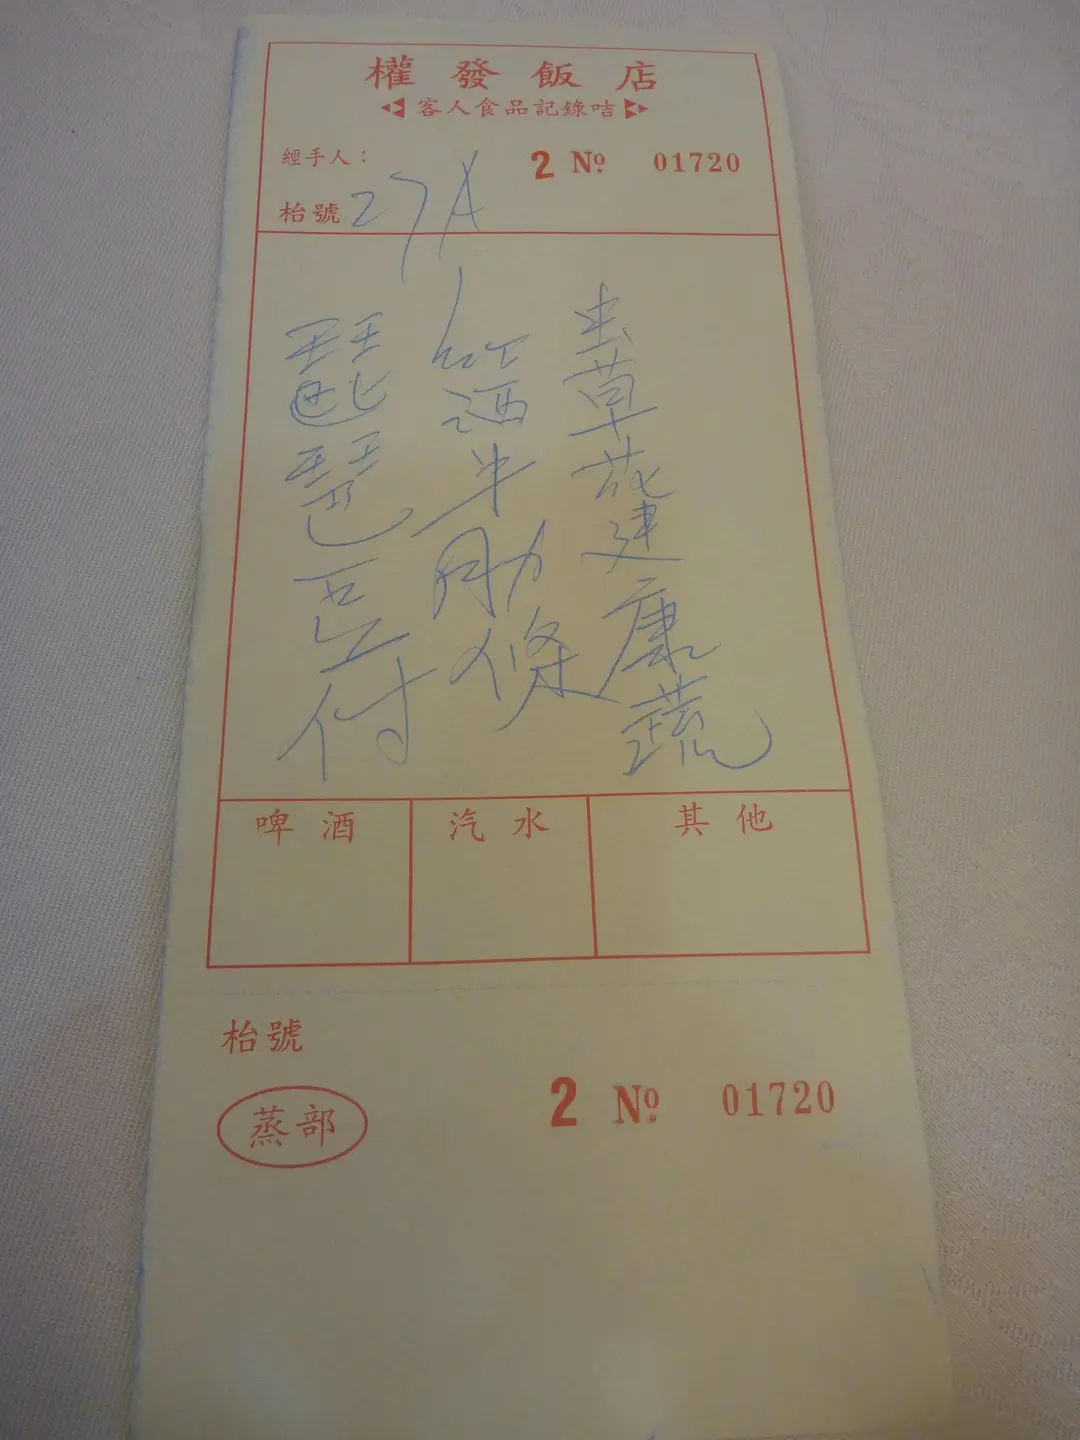 權發飯店
客人食品記錄咭
經手人：
2 Nº 01720
枱號 27A
虫草花健康蔬
紅酒牛肋條
琵琶豆付
啤酒
汽水
其他
枱號
蒸部
2 Nº 01720